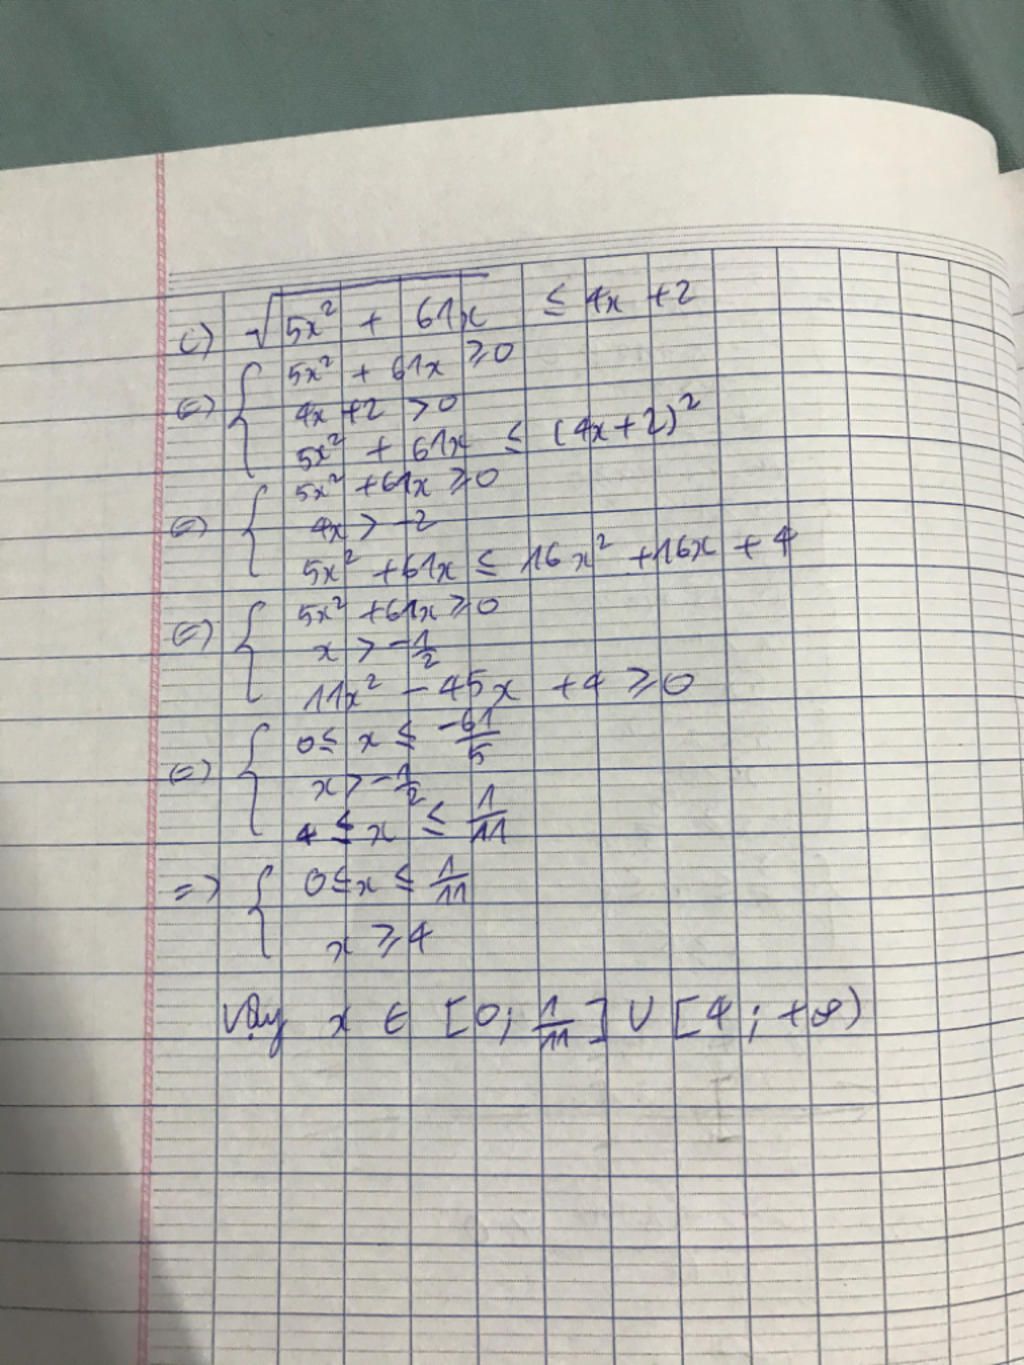 c) √(5x² + 61x) ≤ 4x + 2
(=) { 5x² + 61x ≥ 0
4x + 2 > 0
5x² + 61x ≤ (4x+2)²
(=) { 5x² + 61x ≥ 0
4x > -2
5x² + 61x ≤ 16x² + 16x + 4
(=) { 5x² + 61x ≥ 0
x > -1/2
11x² - 45x + 4 ≥ 0
(=) { 0 ≤ x ≤ -61/5
x > -1/2
4 ≤ x ≤ 1/11
=> { 0 ≤ x ≤ 1/11
x ≥ 4
Vậy x ∈ [0; 1/11] ∪ [4; +∞)